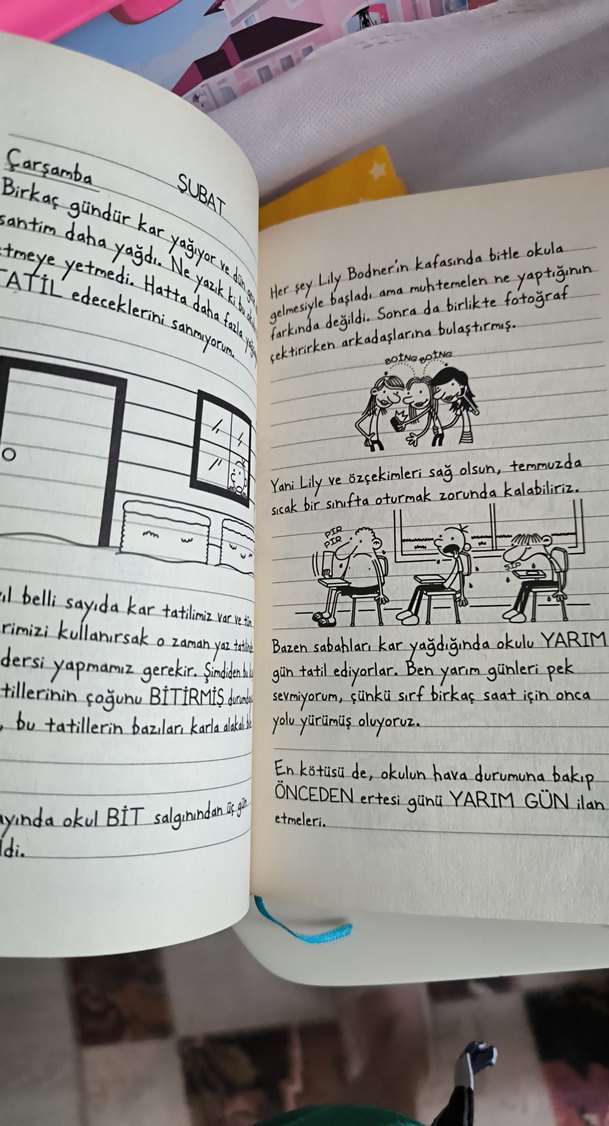 ŞUBAT
Çarşamba
Birkaç gündür kar yağıyor ve dün gece
santim daha yağdı. Ne yazık ki bu
etmeye yetmedi. Hatta daha fazla
TATİL edeceklerini sanmıyorum.
belli sayıda kar tatilimiz var ve
kullanırsak o zaman yaz
dersi yapmamız gerekir. Şimdiden bu
çoğunu BİTİRMİŞ
, bu tatillerin bazıları karla alakalı
ayında okul BİT salgınından üç gün
Her şey Lily Bodner'in kafasında bitle okula
gelmesiyle başladı ama muhtemelen ne yaptığının
farkında değildi. Sonra da birlikte fotoğraf
çektirirken arkadaşlarına bulaştırmış.
BOİNG BOİNG
Yani Lily ve özçekimleri sağ olsun, temmuzda
sıcak bir sınıfta oturmak zorunda kalabiliriz.
PIR
PIR
ŞIP
Bazen sabahları kar yağdığında okulu YARIM
gün tatil ediyorlar. Ben yarım günleri pek
sevmiyorum, çünkü sırf birkaç saat için onca
yolu yürümüş oluyoruz.
En kötüsü de, okulun hava durumuna bakıp
ÖNCEDEN ertesi günü YARIM GÜN ilan
etmeleri.